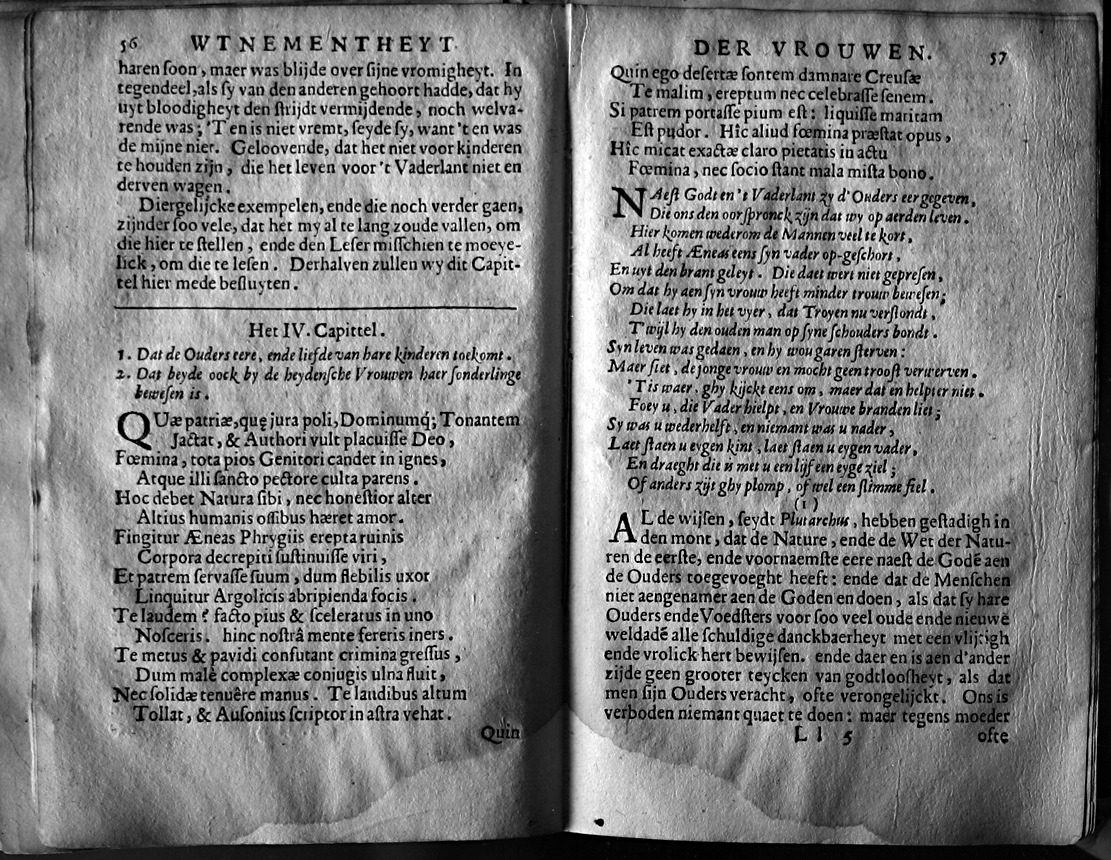 56 WTNEMENTHEYT
haren soon, maer was blijde over sijne vromigheyt. In
tegendeel, als sy van den anderen gehoort hadde, dat hy
uyt bloodigheyt den strijdt vermijdende, noch welva-
rende was; 'T en is niet vremt, seyde sy, want 't en was
de mijne niet. Geloovende, dat het niet voor kinderen
te houden zijn, die het leven voor 't Vaderlant niet en
derven wagen.
Diergelijcke exempelen, ende die noch verder gaen,
zijnder soo vele, dat het my al te lang zoude vallen, om
die hier te stellen, ende den Leser misschien te moeye-
lick, om die te lesen. Derhalven zullen wy dit Capit-
tel hier mede besluyten.
Het IV. Capittel.
1. Dat de Ouders eere, ende liefde van hare kinderen toekomt.
2. Dat beyde oock by de heydensche Vrouwen haer sonderlinge
bewesen is.
QUæ patriæ, quę jura poli, Dominumq́; Tonantem
Jactat, & Authori vult placuisse Deo,
Fœmina, tota pios Genitori candet in ignes,
Atque illi sancto pectore culta parens.
Hoc debet Natura sibi, nec honestior alter
Altius humanis ossibus hæret amor.
Fingitur Æneas Phrygiis erepta ruinis
Corpora decrepiti sustinuisse viri,
Et patrem servasse suum, dum flebilis uxor
Linquitur Argolicis abripienda focis.
Te laudem? facto pius & sceleratus in uno
Nosceris. hinc nostrâ mente fereris iners.
Te metus & pavidi confutant crimina gressus,
Dum malè complexæ conjugis ulna fluit,
Nec solidæ tenuêre manus. Te laudibus altum
Tollat, & Ausonius scriptor in astra vehat.
Quin
DER VROUWEN. 57
Quin ego desertæ sontem damnare Creusæ
Te malim, ereptum nec celebrasse senem.
Si patrem portasse pium est: liquisse maritam
Est pudor. Hîc aliud fœmina præstat opus,
Hîc micat exactæ claro pietatis in actu
Fœmina, nec socio stant mala mista bono.
NAest Godt en 't Vaderlant zy d'Ouders eer gegeven,
Die ons den oorspronck zijn dat wy op aerden leven.
Hier komen wederom de Mannen veel te kort,
Al heeft Æneas eens syn vader op-geschort,
En uyt den brant geleyt. Die daet wert niet gepresen,
Om dat hy aen syn vrouw heeft minder trouw bewesen;
Die laet hy in het vyer, dat Troyen nu verslondt,
T'wijl hy den ouden man op syne schouders bondt.
Syn leven was gedaen, en hy wou garen sterven:
Maer siet, de jonge vrouw en mocht geen troost verwerven.
'Tis waer, ghy kijckt eens om, maer dat en helpter niet.
Foey u, die Vader hielpt, en Vrouwe branden liet;
Sy was u wederhelft, en niemant was u nader,
Laet staen u eygen kint, laet staen u eygen vader,
En draeght die is met u een lijf een eyge ziel;
Of anders zijt ghy plomp, of wel een slimme fiel.
(1)
AL de wijsen, seydt Plutarchus, hebben gestadigh in
den mont, dat de Nature, ende de Wet der Natu-
ren de eerste, ende voornaemste eere naest de Godẽ aen
de Ouders toegevoeght heeft: ende dat de Menschen
niet aengenamer aen de Goden en doen, als dat sy hare
Ouders ende Voedsters voor soo veel oude ende nieuwe
weldadẽ alle schuldige danckbaerheyt met een vlijtigh
ende vrolick hert bewijsen. ende daer en is aen d'ander
zijde geen grooter teycken van godtloosheyt, als dat
men sijn Ouders veracht, ofte verongelijckt. Ons is
verboden niemant quaet te doen: maer tegens moeder
L l 5 ofte